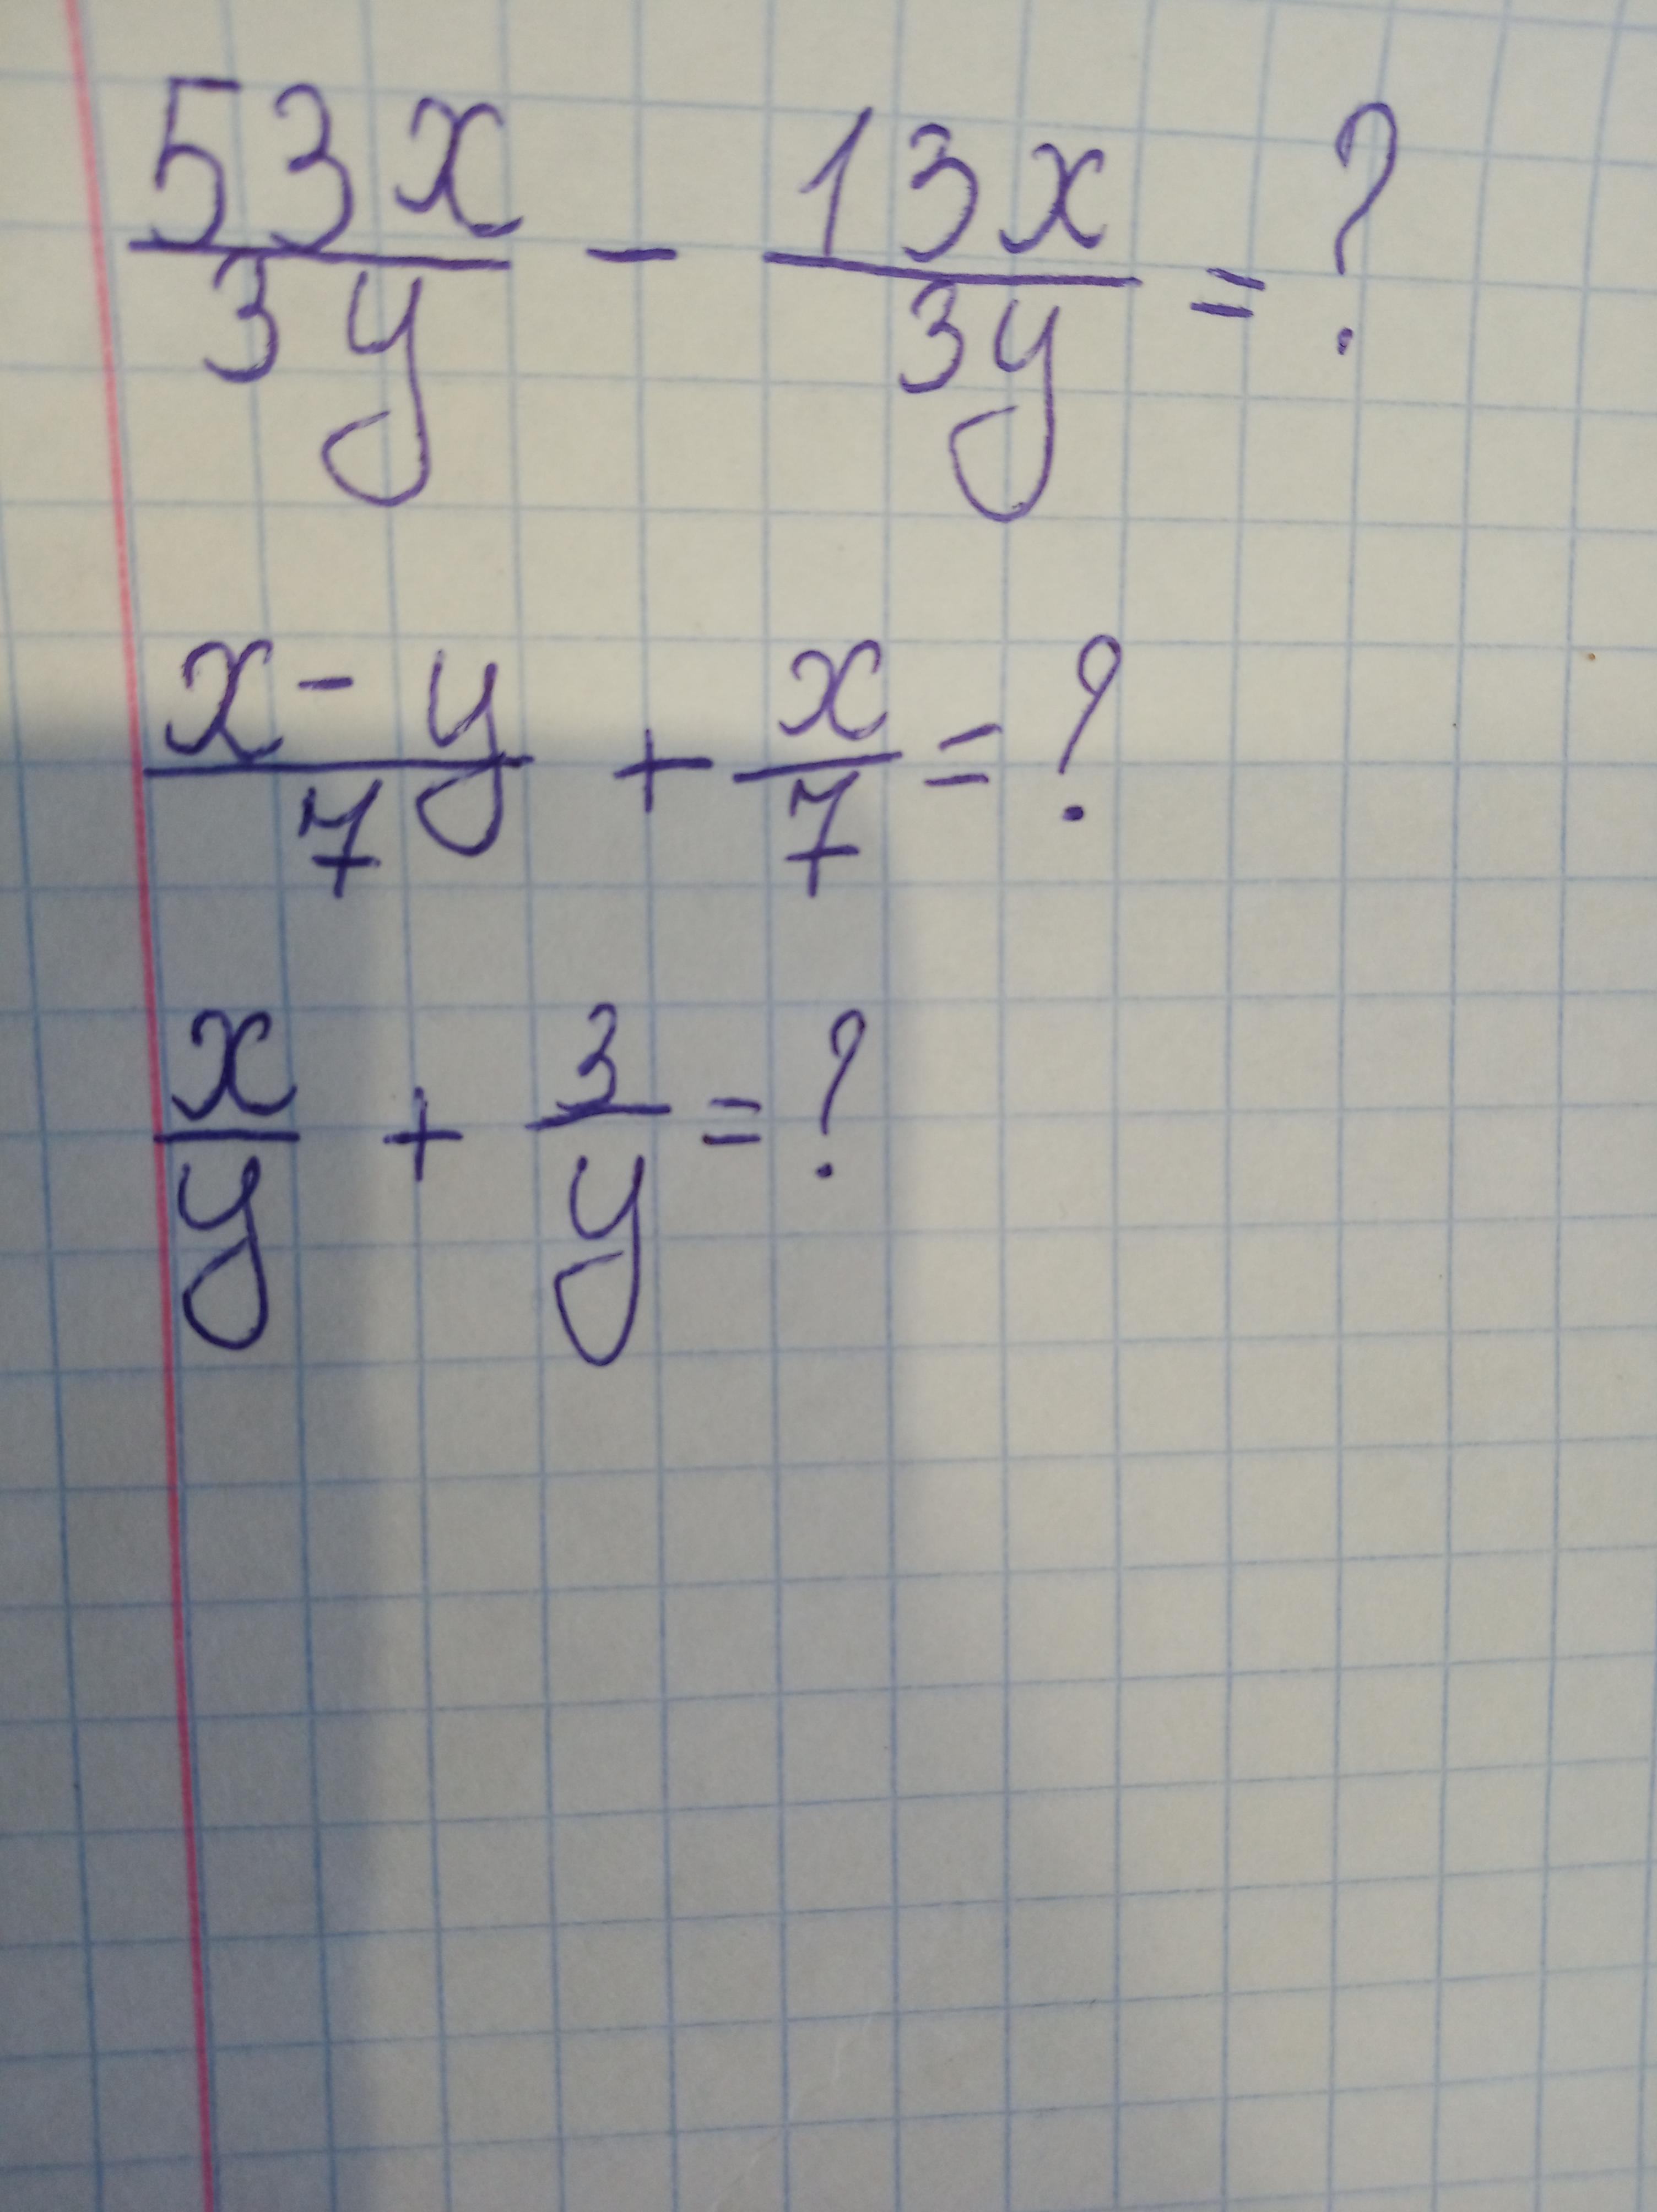 53x/3y - 13x/3y = ?
x - y/7 + x/7 = ?
x/y + 3/y = ?